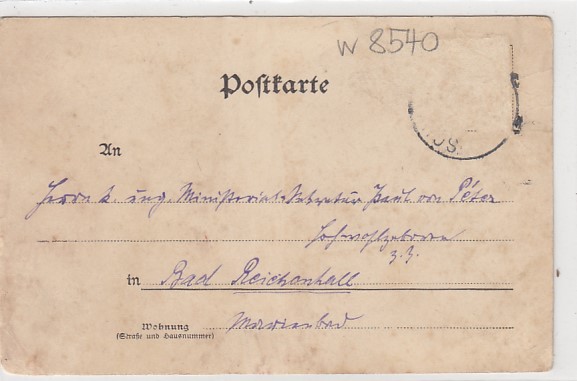 W 8540
Postkarte
An
Herrn k. ung. Ministerial-Sekretär Paul von Péter
Hochwohlgeboren
z. Z.
in Bad Reichenhall
Wohnung Marienbad
(Straße und Hausnummer)